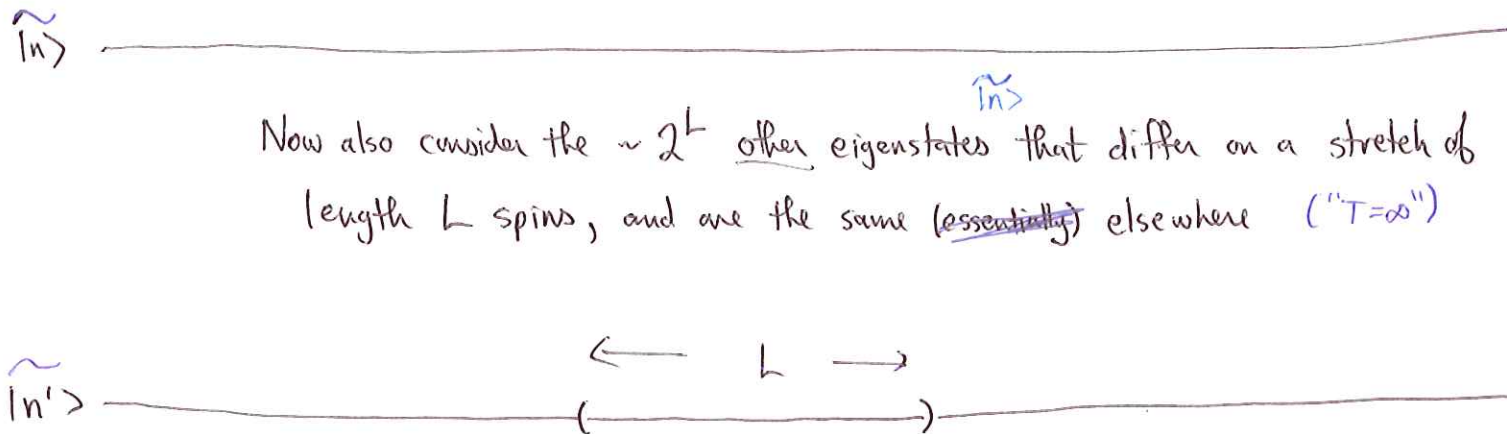 |ñ>
|ñ>
Now also consider the ~ 2^L other eigenstates that differ on a stretch of
length L spins, and are the same (essentially) elsewhere ("T=∞")
← L →
|ñ'> ( )